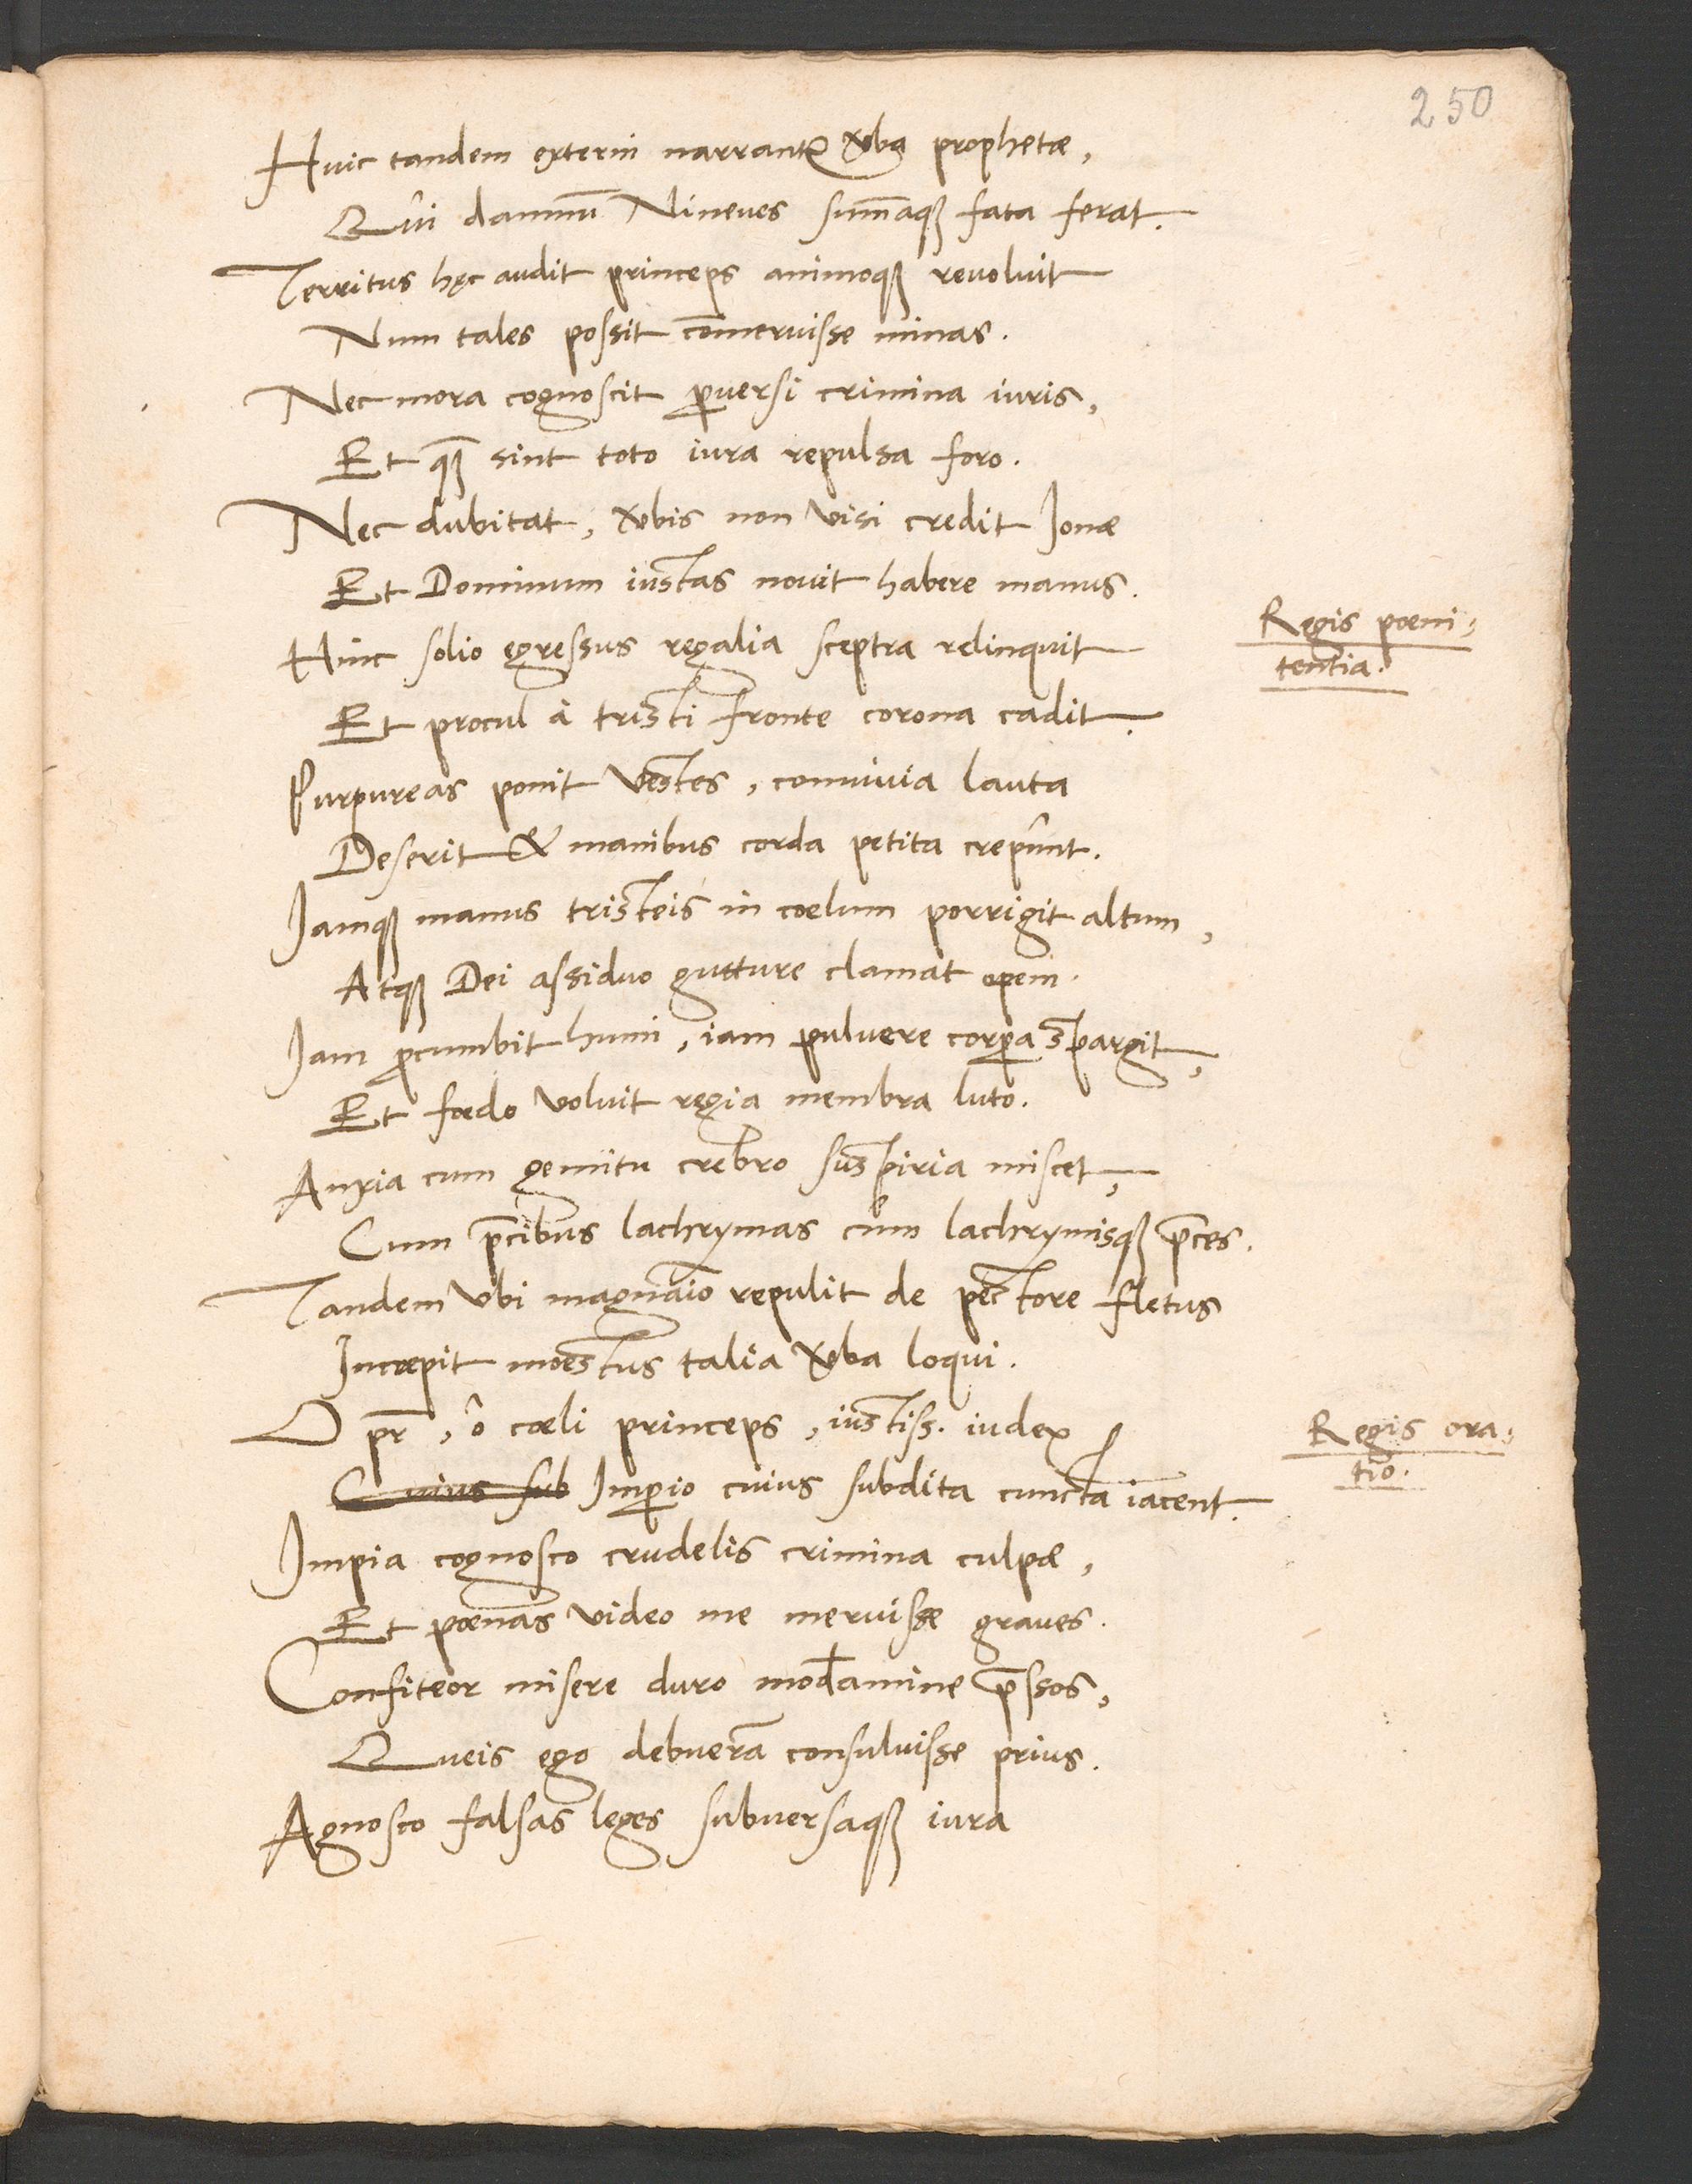 250
Huic tandem externi narrantur verba prophetæ,
Qui damnū Nineues sum̄aqꝫ fata ferat.
Territus hęc audit princeps animoqꝫ reuoluit
Num tales possit com̄eruisse minas.
Nec mora cognoscit ꝑuersi crimina iuris,
Et qꝫ sint toto iura repulsa foro.
Nec dubitat, verbis non visi credit Ionæ
Et Dominum iustas nouit habere manus.
Regis poeni-
tentia.
Hinc solio egressus regalia sceptra relinquit
Et procul à tristi fronte corona cadit.
Purpureas ponit vestes, conuiuia lauta
Deserit & manibus corda petita crepūnt.
Iamqꝫ manus tristeis in coelum porrigit altum,
Atqꝫ Dei assiduo gutture clamat opem.
Iam ꝓcumbit humi, iam puluere corꝑa spargit,
Et fœdo voluit regia membra luto.
Anxia cum gemitu crebro suspiria miscet,
Cum p̄cibus lachrymas cùm lachrymisqꝫ p̄ces.
Tandem vbi magnaīo repulit de pectore fletus
Incæpit moestus talia verba loqui.
Regis ora-
tio.
O pr̄, ô cœli princeps, iustiss. iudex
Cuius sub Imꝑio cuius subdita cuncta iacent.
Impia cognosco crudelis crimina culpæ,
Et pœnas video me meruisse graues.
Confiteor misere duro modamine p̄ssos,
Queis ego debuerā consuluisse prius.
Agnosco falsas leges subuersaqꝫ iura